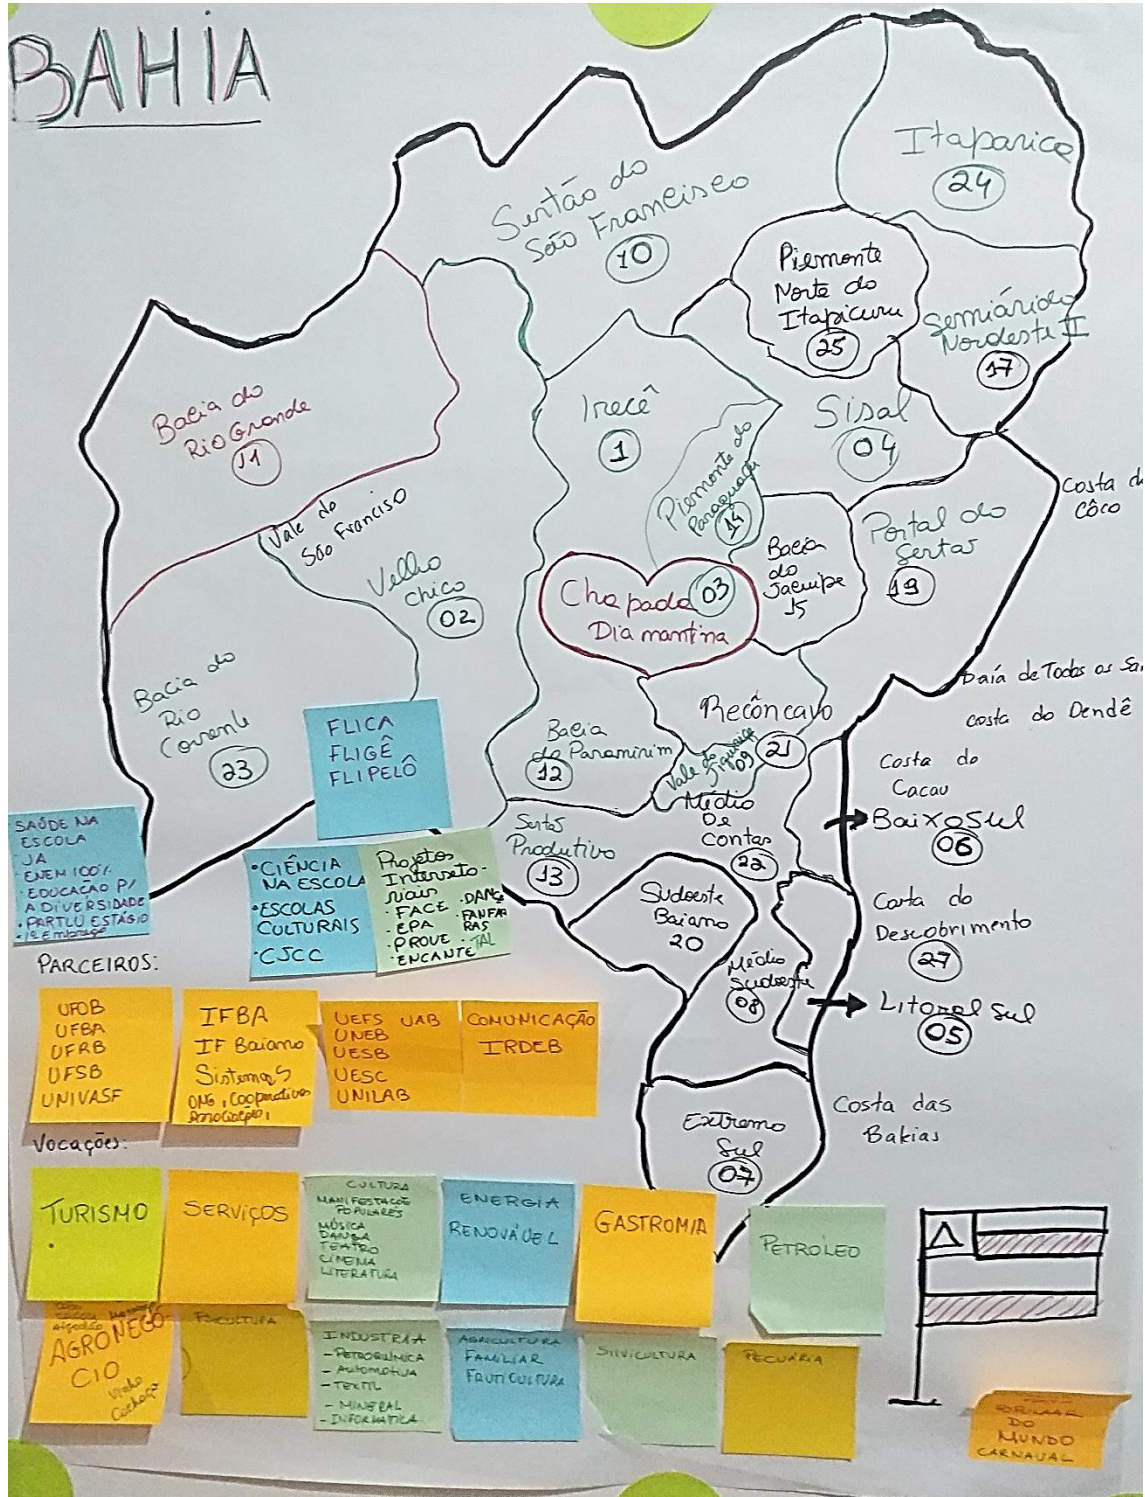 BAHIA
Itaparica
24
Sertão do
São Francisco
10
Piemonte
Norte do
Itapicuru
25
Semiárido
Nordeste II
17
Bacia do
Rio Grande
11
Irecê
1
Sisal
04
Piemonte do
Paraguaçu
14
Costa do
Côco
Vale do
São Franciso
Velho
Chico
02
Bacia
do
Jacuipe
15
Portal do
Sertão
19
Chapada 03
Diamantina
Bacia do
Rio
Corrente
23
Baía de Todos os San
Costa do Dendê
Recôncavo
21
Bacia
do Paramirim
12
Vale do
Jiquiriça
09
Costa do
Cacau
Baixo Sul
06
Médio
De
Contas
22
Sertão
Produtivo
13
Sudoeste
Baiano
20
Costa do
Descobrimento
27
Médio
Sudoeste
08
Litoral Sul
05
Costa das
Baleias
Extremo
Sul
07
FLICA
FLIGÊ
FLIPELÔ
SAÚDE NA
ESCOLA
JA
ENEM 100%
• EDUCAÇÃO P/
A DIVERSIDADE
• PARTIU ESTÁGIO
• 1º Emprego
• CIÊNCIA
NA ESCOLA
• ESCOLAS
CULTURAIS
• CJCC
Projetos
Interseto-
riais
• FACE
• EPA
• PROVE
• ENCANTE
• DANCE
• FANFAR
RAS
TAL
PARCEIROS:
UFOB
UFBA
UFRB
UFSB
UNIVASF
IFBA
IF Baiano
Sistema S
ONG, Cooperativas
Associação,
UEFS UAB
UNEB
UESB
UESC
UNILAB
COMUNICAÇÃO
IRDEB
Vocações:
TURISMO
SERVIÇOS
CULTURA
MANIFESTAÇÕE
POPULARES
MÚSICA
DANÇA
TEATRO
CINEMA
LITERATURA
ENERGIA
RENOVÁVEL
GASTROMIA
PETRÓLEO
Algodão
AGRONEGÓ-
CIO
Vinho
Cachaça
PSICULTURA
INDUSTRIA
- PETROQUÍMICA
- Automotiva
- TEXTIL
- MINERAL
- INFORMATICA
AGRICULTURA
FAMILIAR
FRUTICULTURA
SILVICULTURA
PECUÁRIA
DO
MUNDO
CARNAVAL